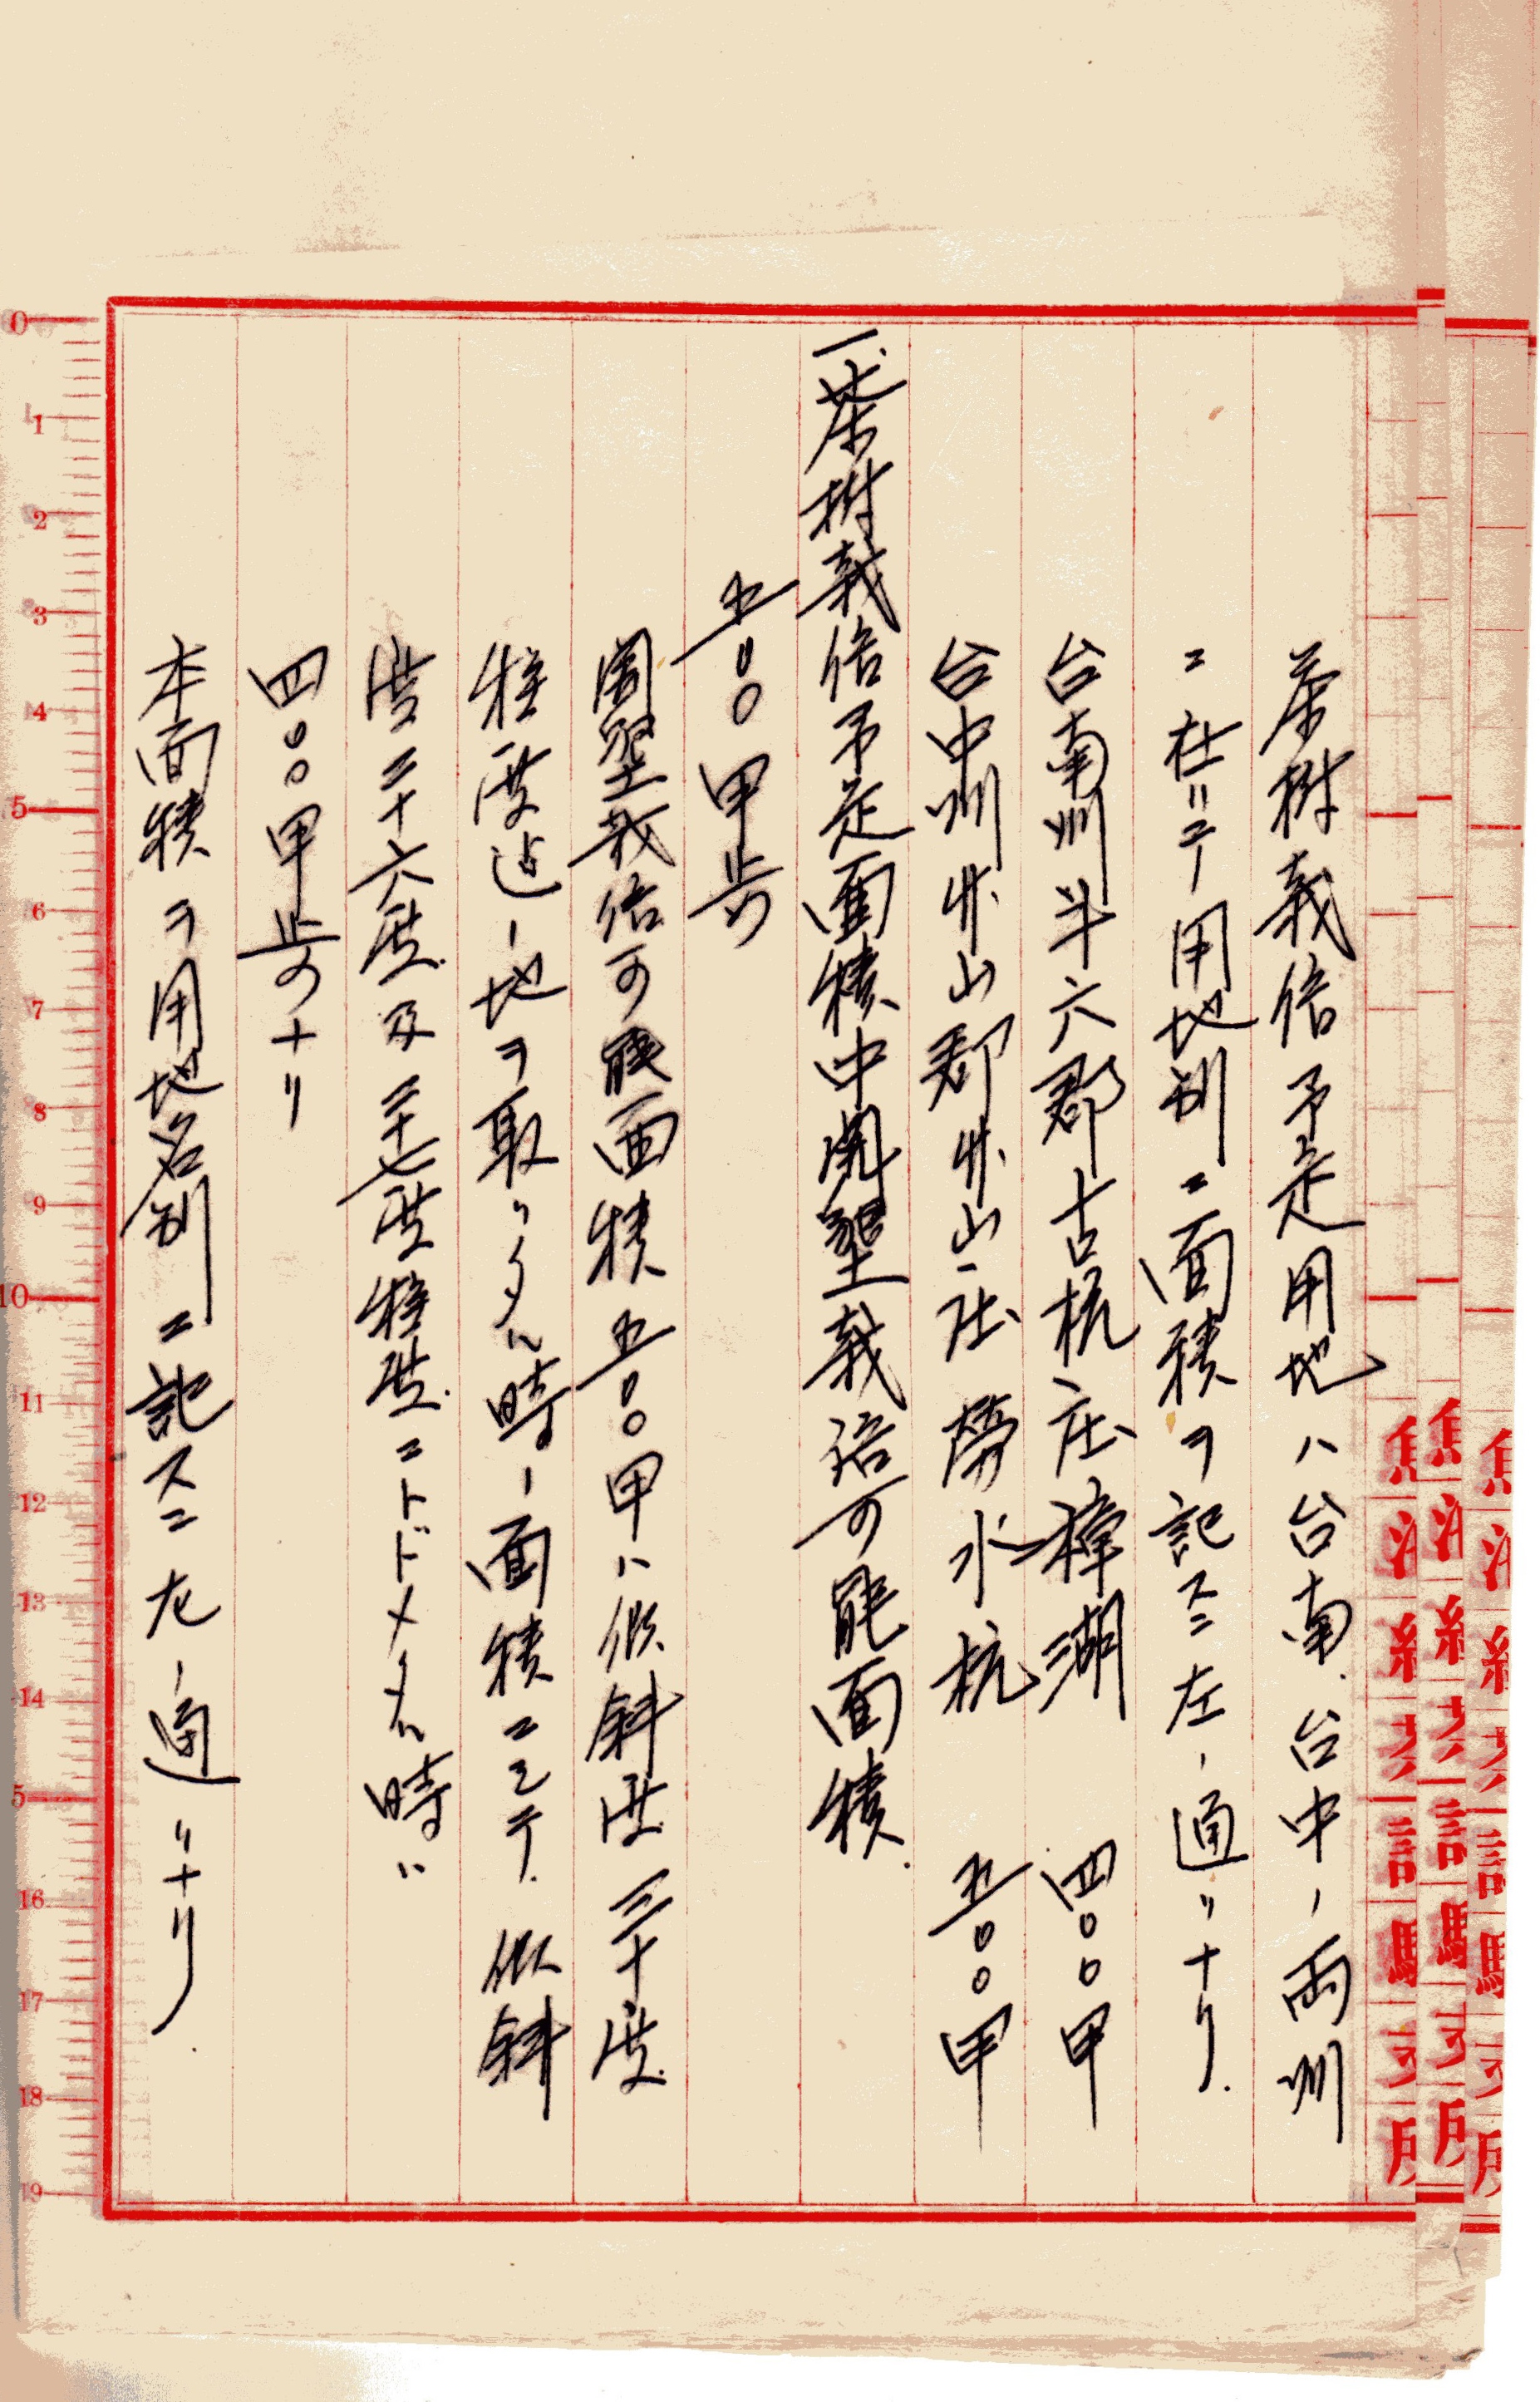 茶樹栽培予定用地ハ台南、台中ノ両州
ニ在リテ用地別ニ面積ヲ記スニ左ノ通リナリ.
台南州斗六郡古坑庄樟湖 四〇〇甲
台中州竹山郡竹山庄勞水坑 五〇〇甲
一、茶樹栽培予定面積中開墾栽培可能面積.
五〇〇甲歩
開墾栽培可能面積五〇〇甲ハ傾斜度三十度
程度迄ノ地ヲ取リタル時ノ面積ニシテ. 傾斜
度二十六度及二十七度程度ニトドメタル時ハ
四〇〇甲歩ナリ
本面積ヲ用地名別ニ記スニ左ノ通リナリ.
0
1
2
3
4
5
6
7
8
9
10
11
12
13
14
5
16
17
18
19